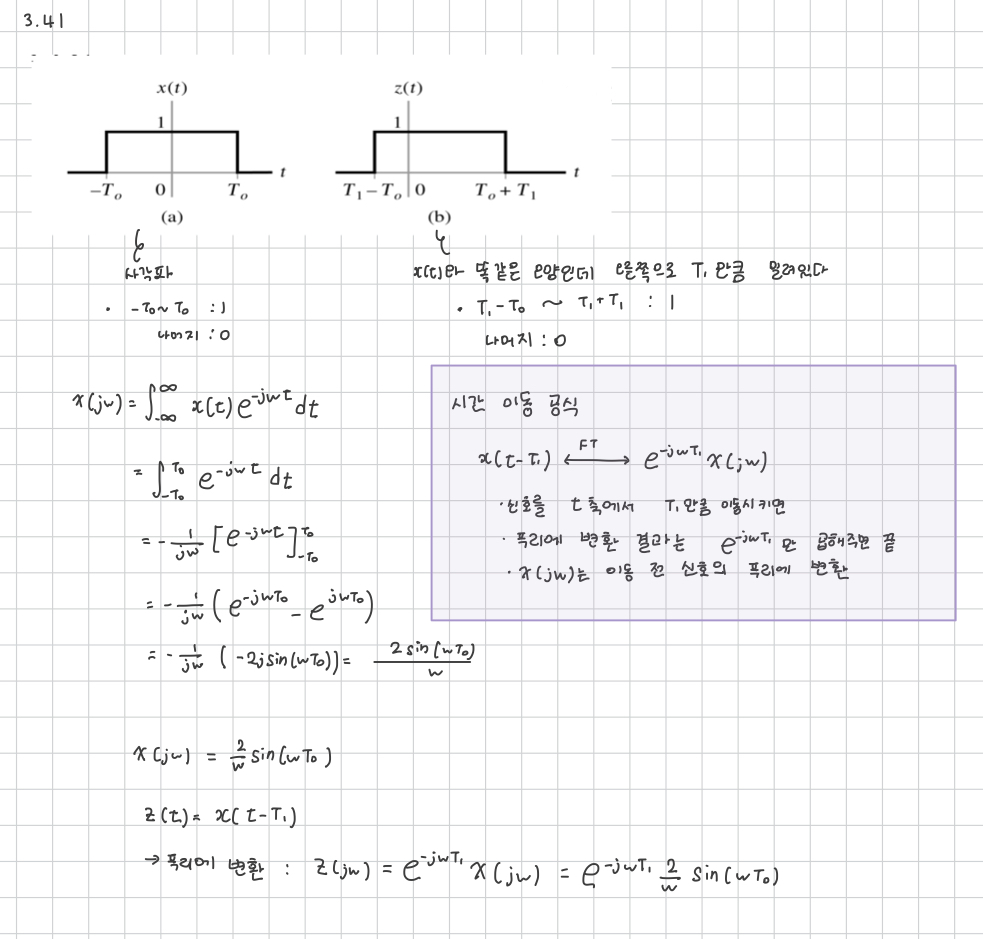 3.41
x(t)
1
−T₀ 0 T₀ t
(a)
z(t)
1
T₁ − T₀ 0 T₀ + T₁ t
(b)
사각파
· -T₀ ~ T₀ : 1
나머지 : 0
x(t)와 똑같은 모양인데 오른쪽으로 T₁ 만큼 밀려있다
· T₁-T₀ ~ T₁+T₁ : 1
나머지 : 0
X(jw) = ∫_{-∞}^{∞} x(t) e^{-jwt} dt
= ∫_{-T₀}^{T₀} e^{-jwt} dt
= - 1/jw [e^{-jwt}]_{-T₀}^{T₀}
= - 1/jw (e^{-jwT₀} - e^{jwT₀})
= - 1/jw (-2jsin(wT₀)) = 2sin(wT₀)/w
시간 이동 공식
x(t-T₁) ←FT→ e^{-jwT₁} X(jw)
· 신호를 t 축에서 T₁ 만큼 이동시키면
· 푸리에 변환 결과는 e^{-jwT₁} 만 곱해주면 끝
· X(jw)는 이동 전 신호의 푸리에 변환
X(jw) = 2/w sin(wT₀)
z(t) = x(t-T₁)
→ 푸리에 변환 : Z(jw) = e^{-jwT₁} X(jw) = e^{-jwT₁} 2/w sin(wT₀)